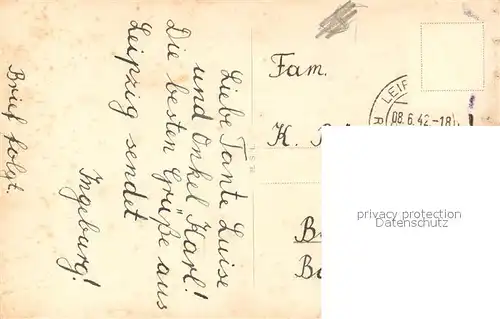 Liebe Tante Luise
und Onkel Karl!
Die besten Grüße aus
Leipzig sendet
Ingeburg!
Brief folgt.
Fam.
K.
LEIP
08.6.42.-18
privacy protection
Datenschutz